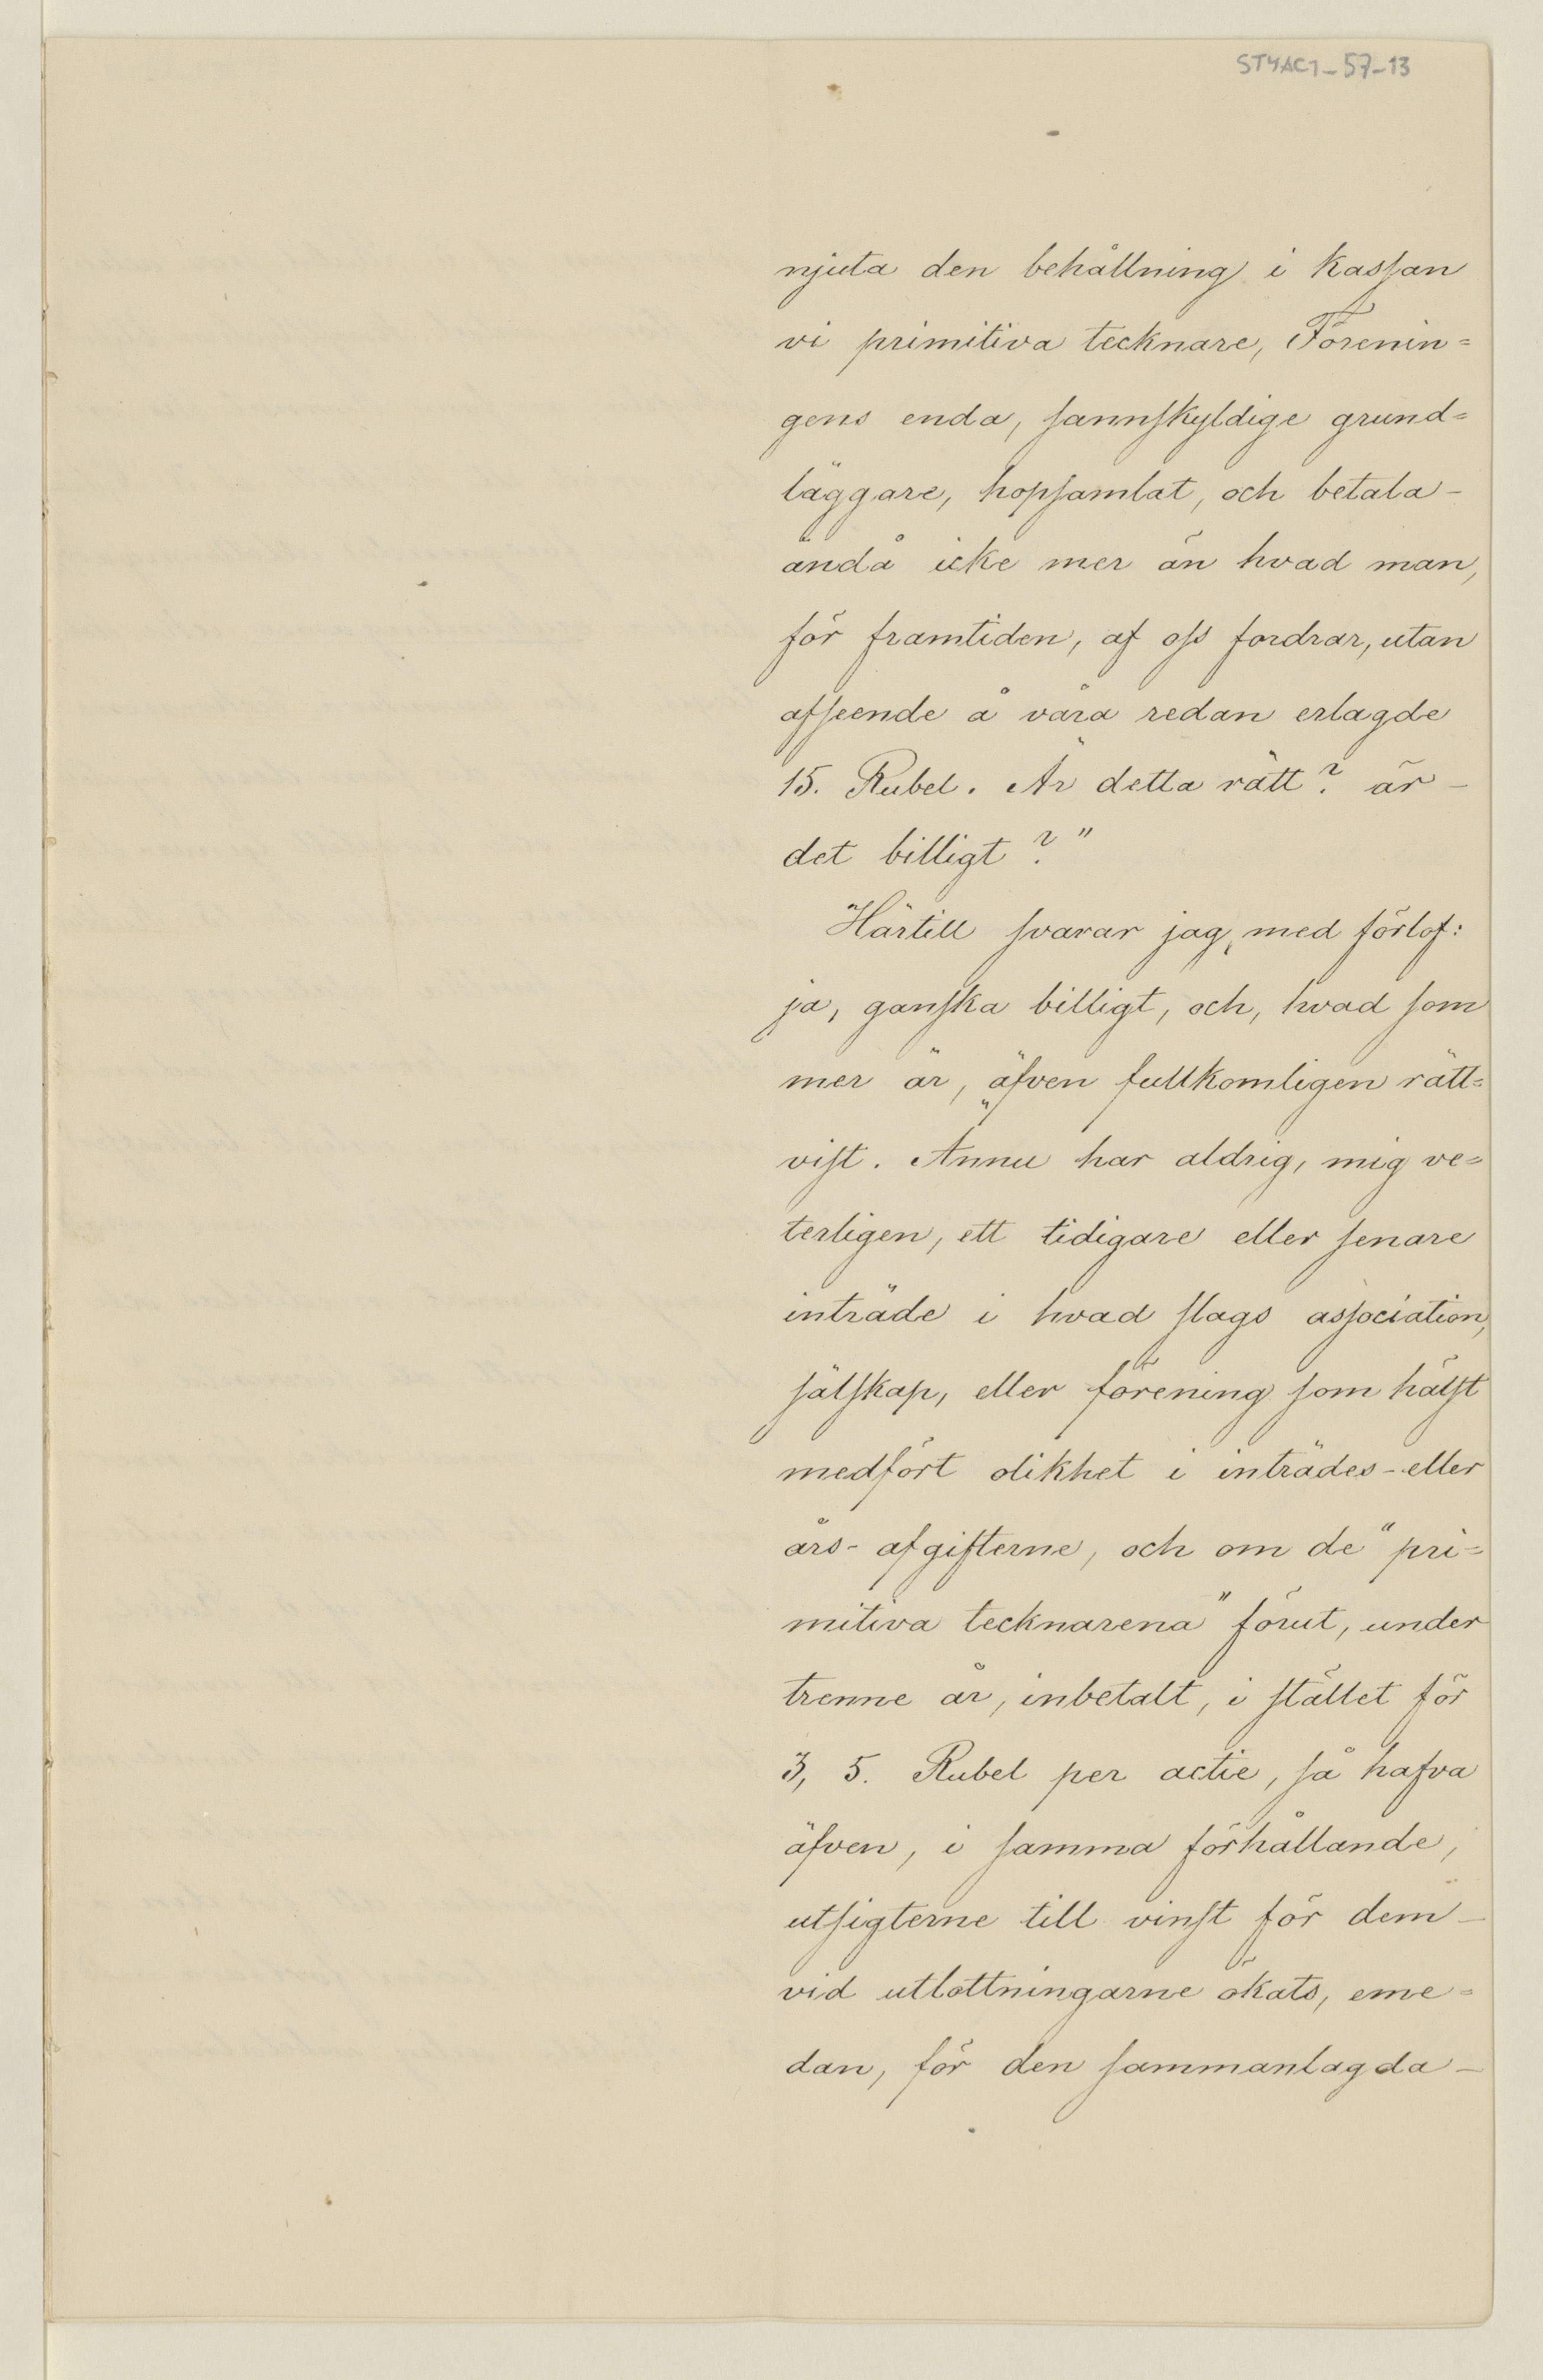 STYAC1-57-13
njuta den behållning i kassan
vi primitiva tecknare, Förenin=
gens enda, sannskyldige grund=
läggare, hopsamlat, och betala -
ändå icke mer än hvad man,
för framtiden, af oss fordrar, utan
afseende å våra redan erlagde
15. Rubel. Är detta rätt? är -
det billigt?"
Härtill svarar jag, med förlof:
ja, ganska billigt, och, hvad som
mer är, äfven fullkomligen rätt=
vist. Ännu har aldrig, mig ve=
terligen, ett tidigare eller senare
inträde i hvad slags association,
sälskap, eller förening som hälst
medfört olikhet i inträdes - eller
års- afgifterne, och om de "pri=
mitiva tecknarena" förut, under
trenne år, inbetalt, i stället för
3, 5. Rubel per actie, så hafva
äfven, i samma förhållande,
utsigterne till vinst för dem -
vid utlottningarne ökats, eme=
dan, för den sammanlagda -